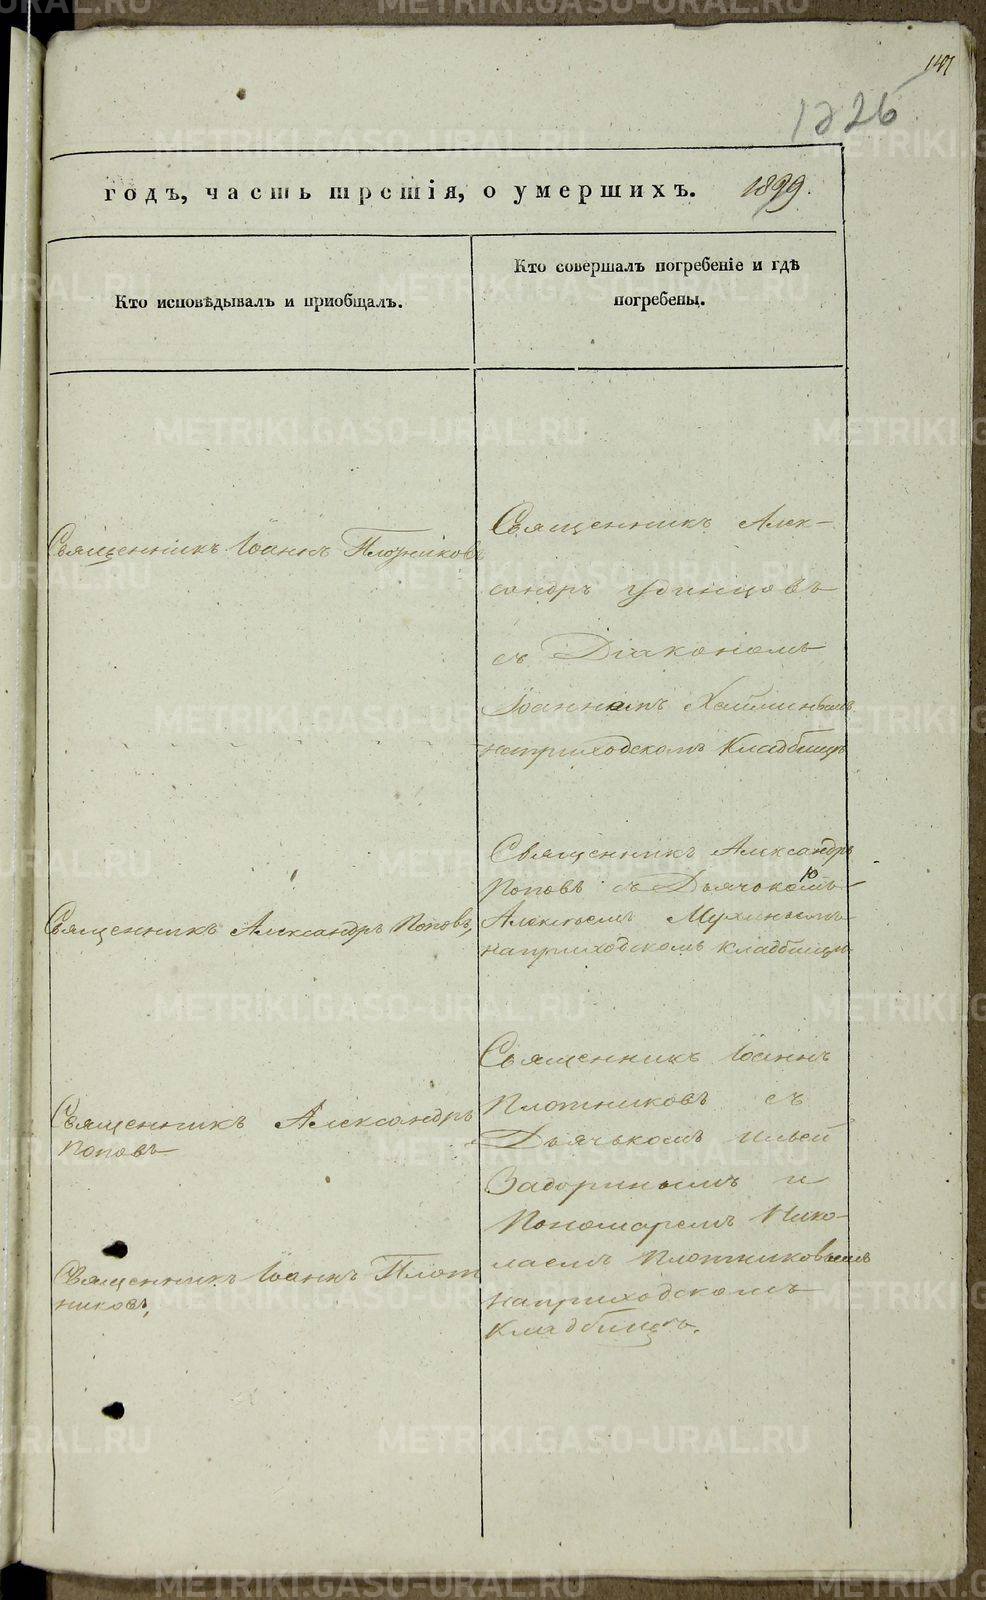 1226
годъ, часть третія, о умершихъ.
Кто исповѣдывалъ и пріобщалъ.
Кто совершалъ погребеніе и гдѣ
погребены.
Священникъ Іоаннъ Плотниковъ
Священникъ Алек-
сандръ Удинцовъ
съ Діакономъ
Іоанномъ
на приходскомъ Кладбищѣ
Священникъ Александръ Поповъ,
Священникъ Александръ
Поповъ съ Дьячокомъ
Алексѣемъ Мухинымъ
на приходскомъ кладбищѣ
Священникъ Александръ
Поповъ
Священникъ Іоаннъ Плот
никовъ,
Священникъ Іоаннъ
Плотниковъ съ
Дьячькомъ Ильей
Задоринымъ и
Пономаремъ Нико-
лаемъ Плотниковымъ
на приходскомъ
Кладбищѣ.
METRIKI.GASO-URAL.RU